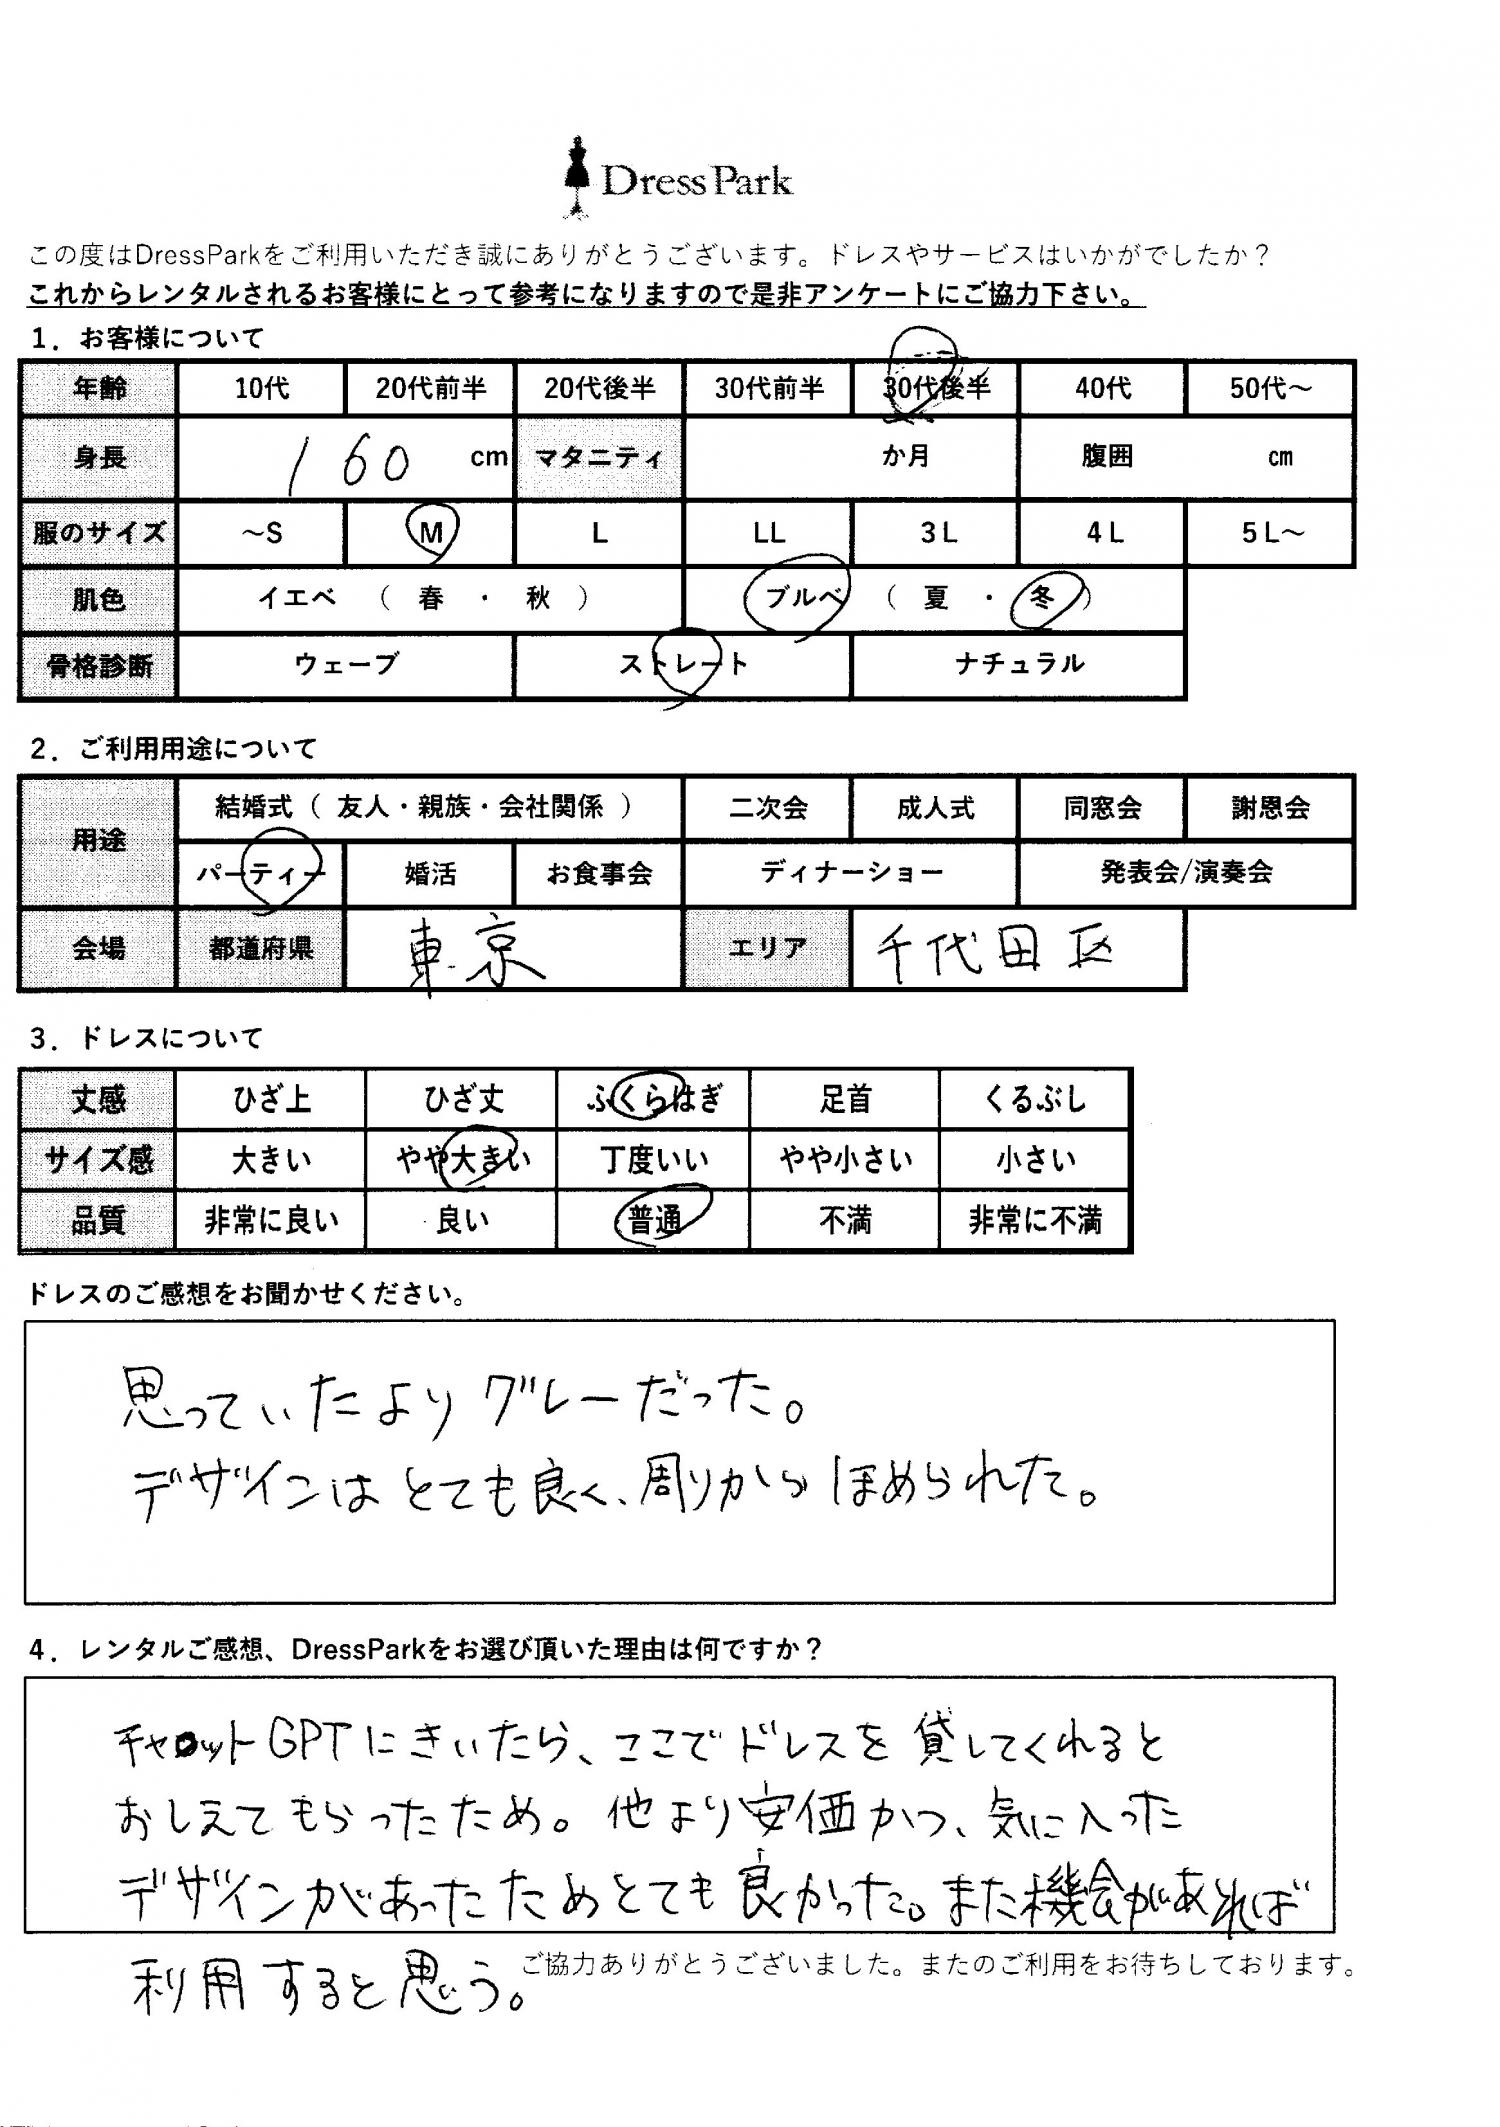 Dress Park
この度はDressParkをご利用いただき誠にありがとうございます。ドレスやサービスはいかがでしたか？
これからレンタルされるお客様にとって参考になりますので是非アンケートにご協力下さい。
1. お客様について
年齢 10代 20代前半 20代後半 30代前半 30代後半 40代 50代～
身長 160 cm マタニティ か月 腹囲 cm
服のサイズ ～S M L LL 3L 4L 5L～
肌色 イエベ （ 春 ・ 秋 ） ブルベ （ 夏 ・ 冬 ）
骨格診断 ウェーブ ストレート ナチュラル
2. ご利用用途について
用途 結婚式（ 友人・親族・会社関係 ） 二次会 成人式 同窓会 謝恩会
パーティー 婚活 お食事会 ディナーショー 発表会/演奏会
会場 都道府県 東京 エリア 千代田区
3. ドレスについて
丈感 ひざ上 ひざ丈 ふくらはぎ 足首 くるぶし
サイズ感 大きい やや大きい 丁度いい やや小さい 小さい
品質 非常に良い 良い 普通 不満 非常に不満
ドレスのご感想をお聞かせください。
思っていたよりグレーだった。
デザインはとても良く、周りからほめられた。
4. レンタルご感想、DressParkをお選び頂いた理由は何ですか？
チャットGPTにきいたら、ここでドレスを貸してくれると
おしえてもらったため。他より安価かつ、気に入った
デザインがあったためとても良かった。また機会があれば
利用すると思う。
ご協力ありがとうございました。またのご利用をお待ちしております。